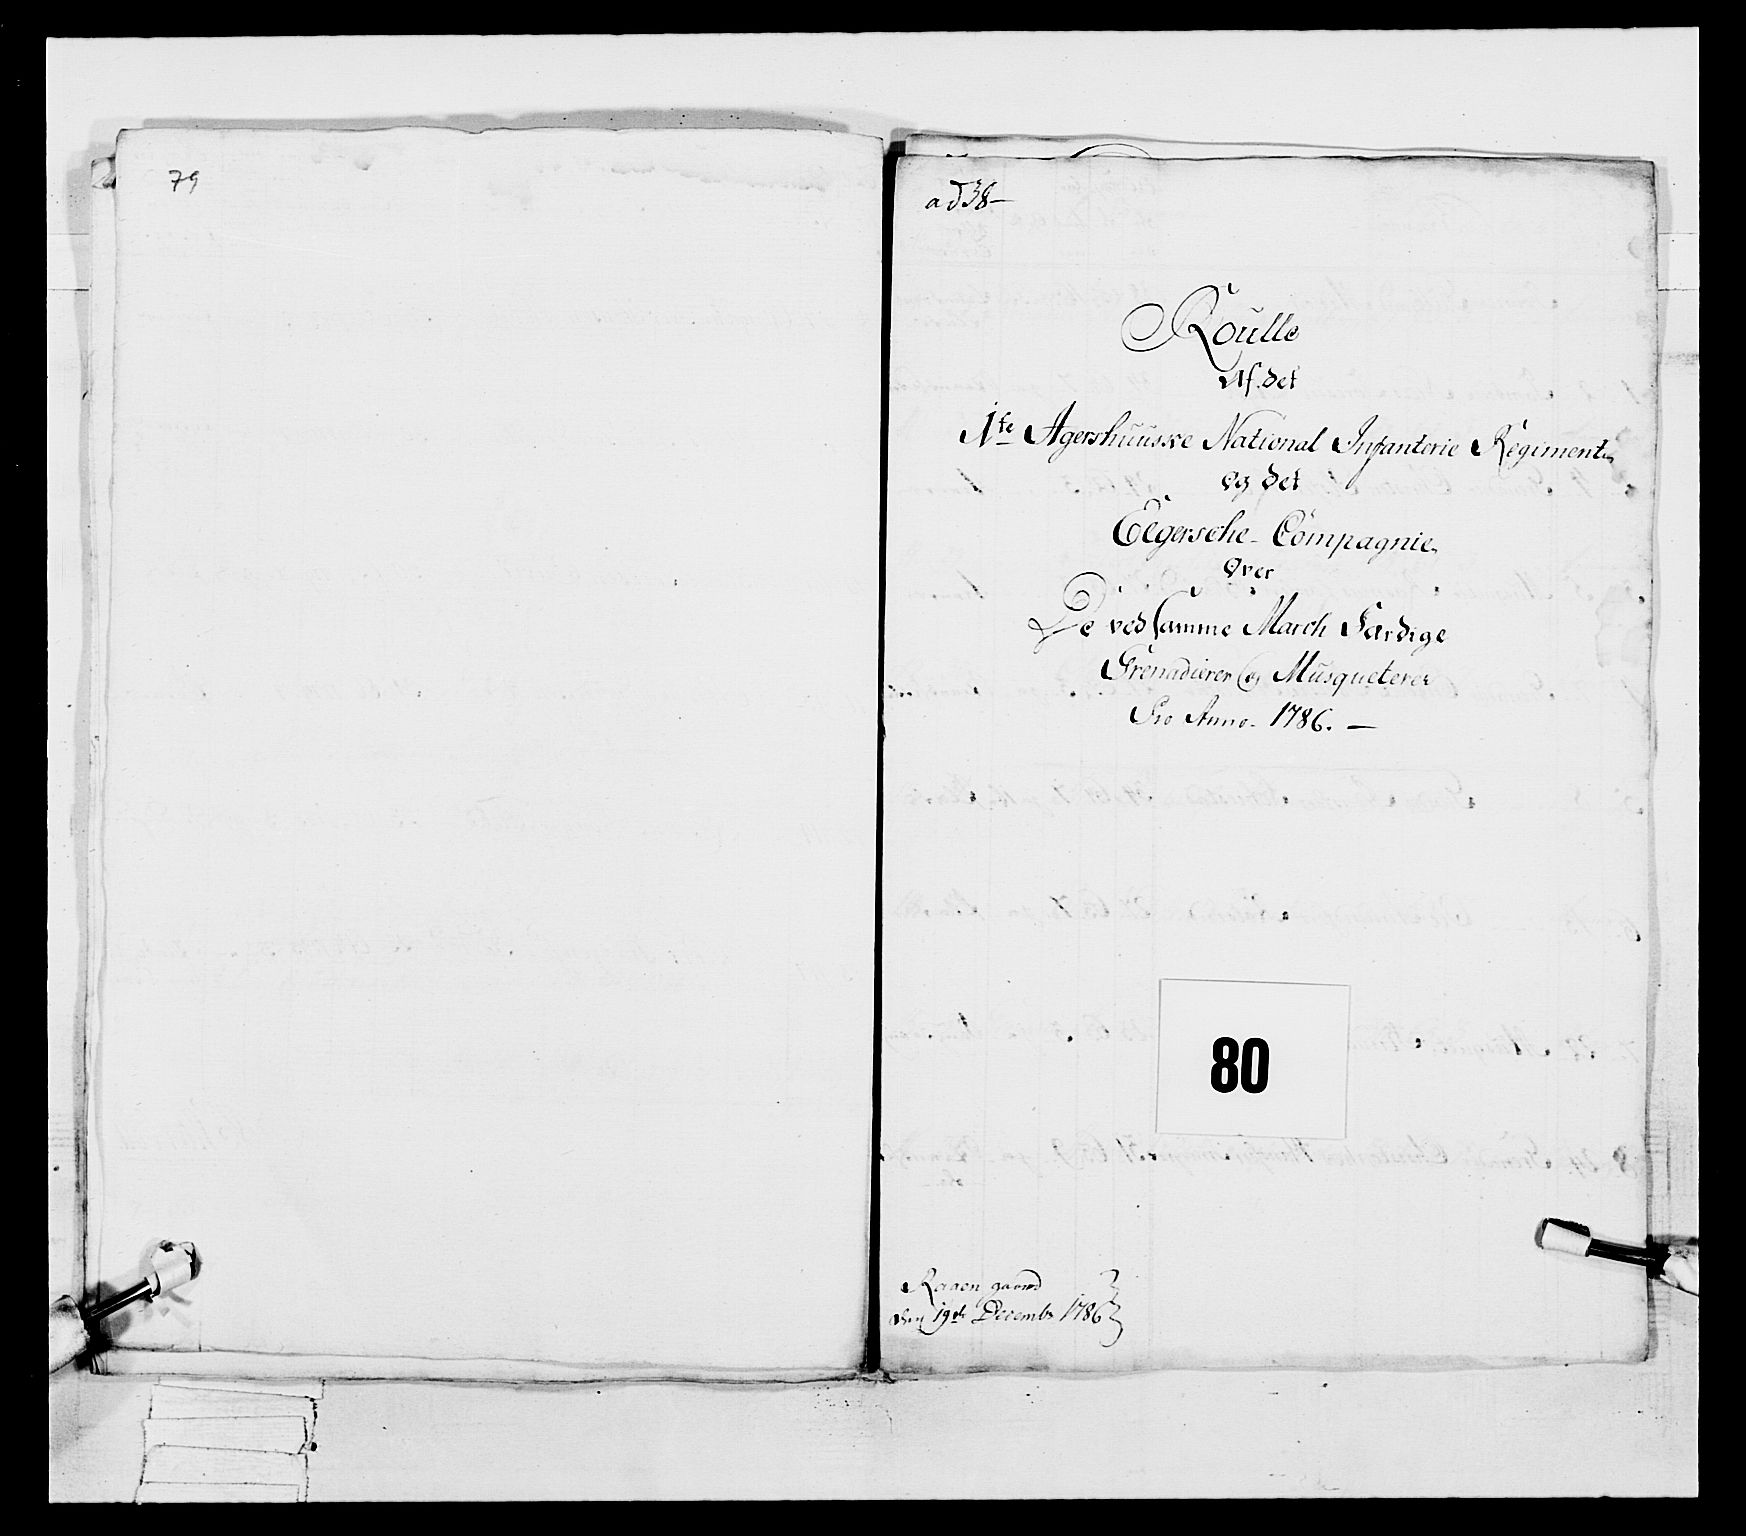 79
ad 38—
Roulle
Af det
1te Agershuuske National Infanterie Regiment
og det
Eegersche Compagnie
Over
De ved samme March Færdige
Grenadierer og Musqueterer
Pro Anno 1786. —
80
gaard
den 19de Decembr 1786